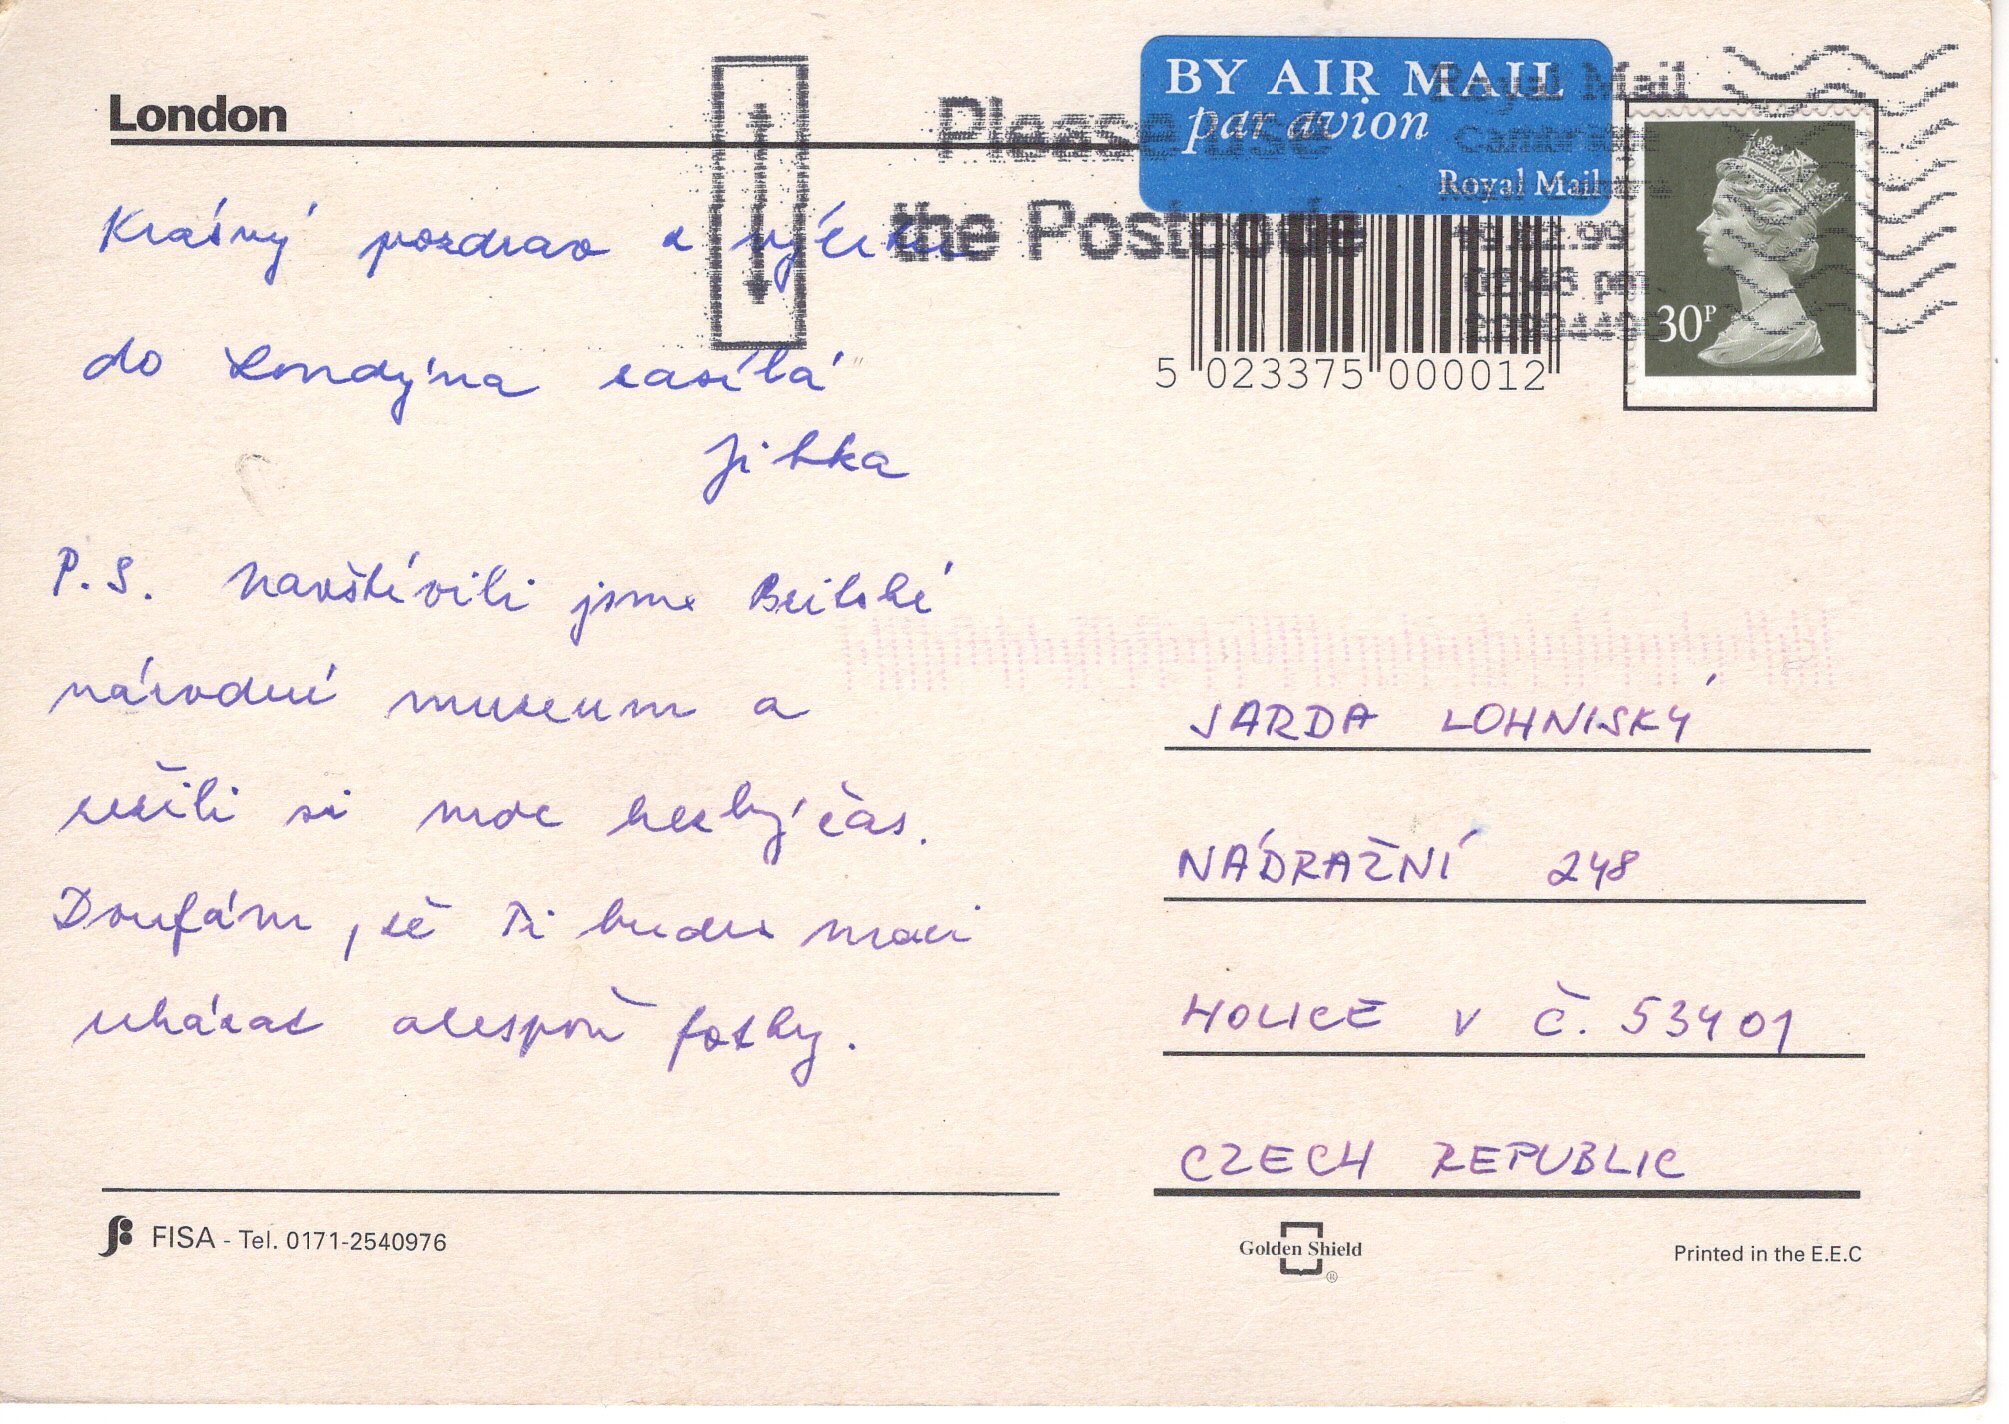 London
Please use
the Postcode
BY AIR MAIL
par avion
Royal Mail
Royal Mail
30P
5 023375 000012
Krásný pozdrav z výletu
do Londýna zasílá
Jitka
P.S. Navštívili jsme Britské
národní muzeum a
užili si moc hezký čas.
Doufám, že Ti budu moci
ukázat alespoň fotky.
JARDA LOHNISKÝ
NÁDRAŽNÍ 248
HOLICE V Č. 53401
CZECH REPUBLIC
FISA - Tel. 0171-2540976
Golden Shield
®
Printed in the E.E.C